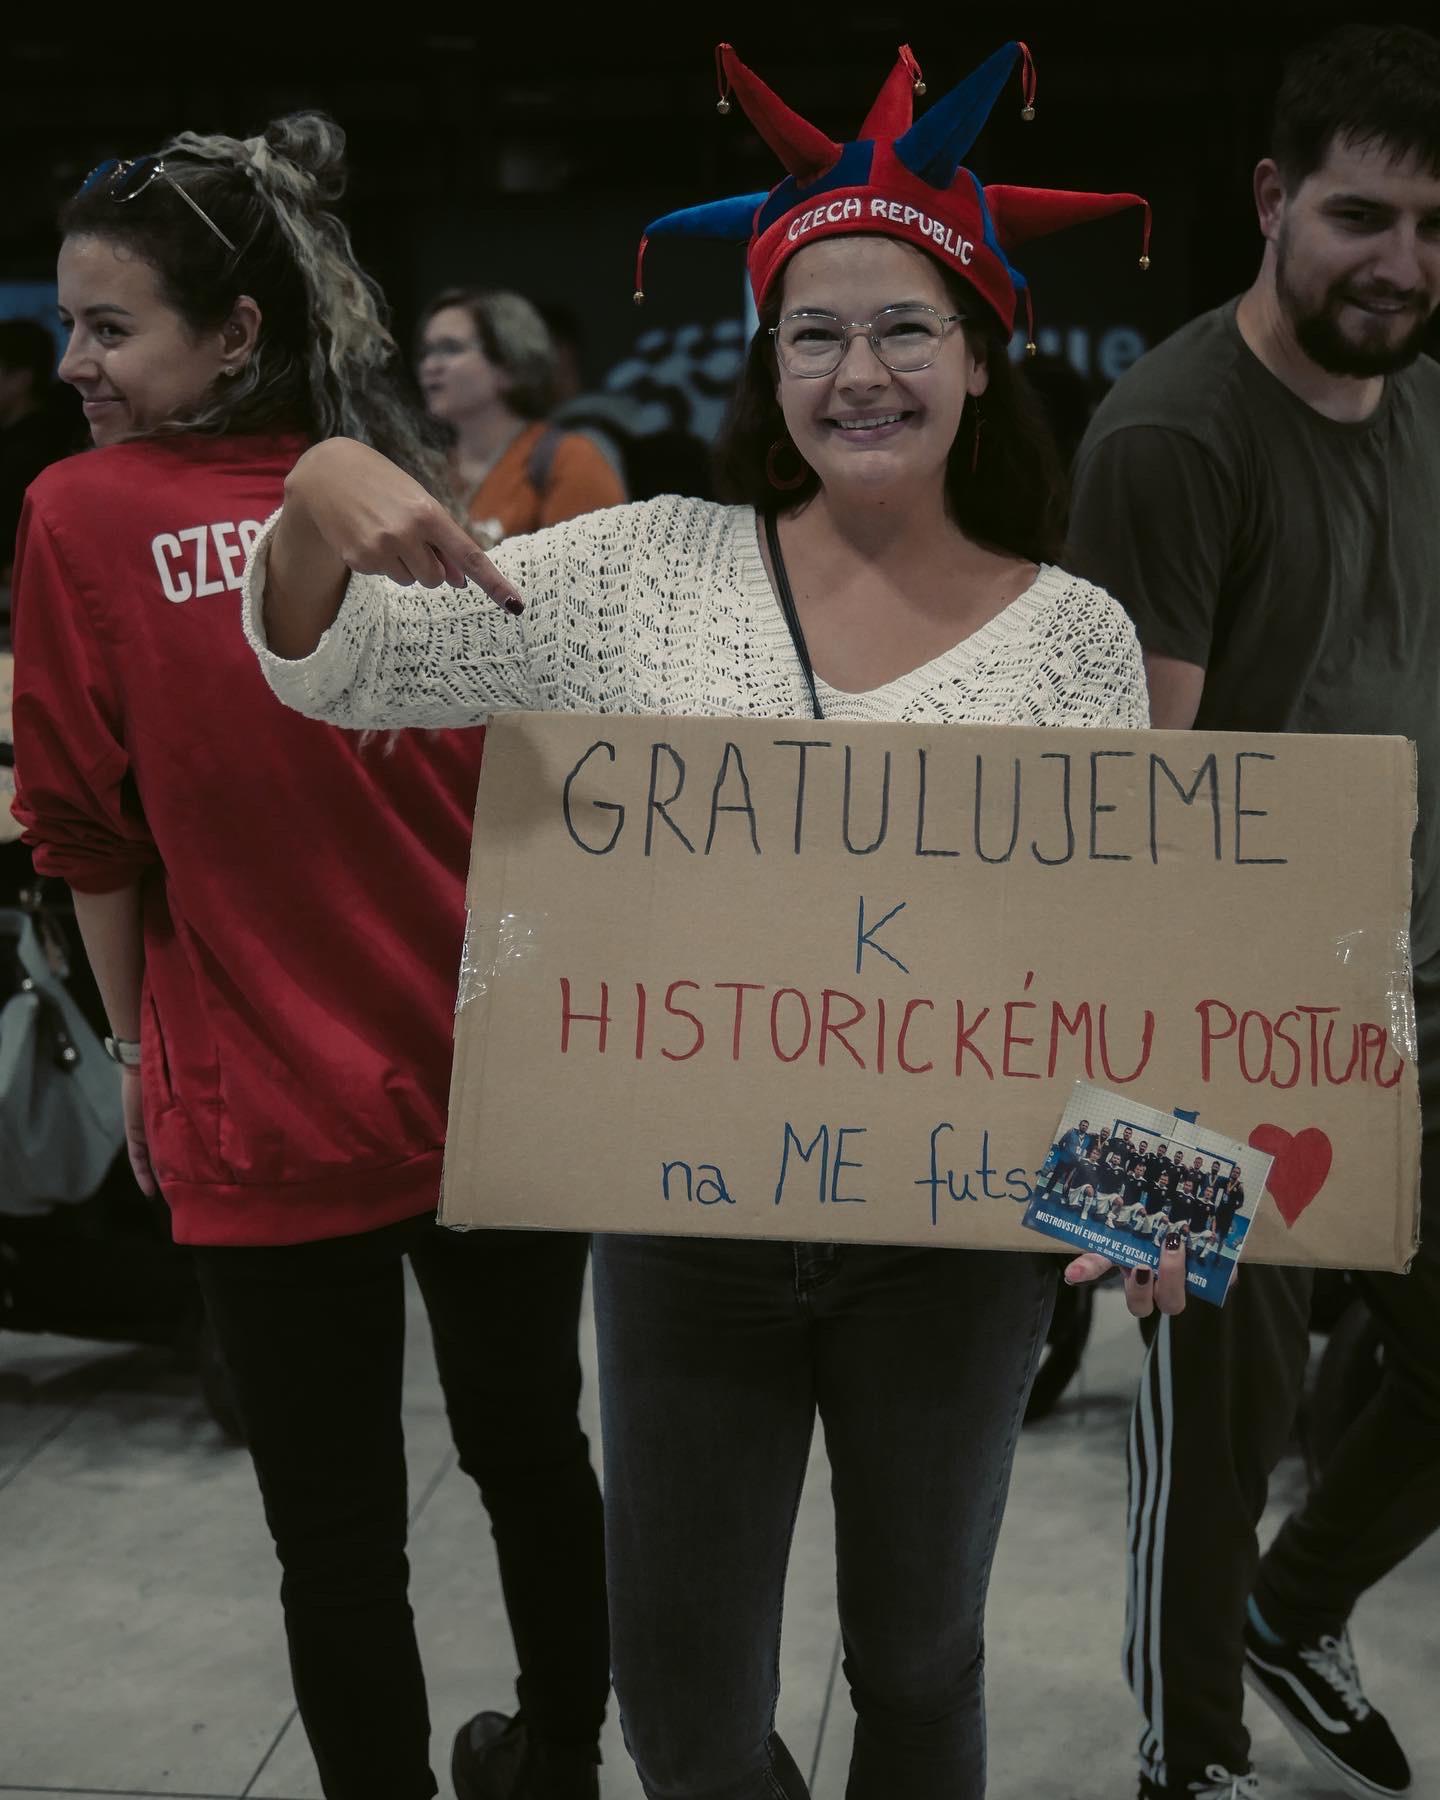 CZECH REPUBLIC
CZEC
GRATULUJEME
K
HISTORICKÉMU POSTUPU
na ME futs
MISTROVSTVÍ EVROPY VE FUTSALE V
MÍSTO